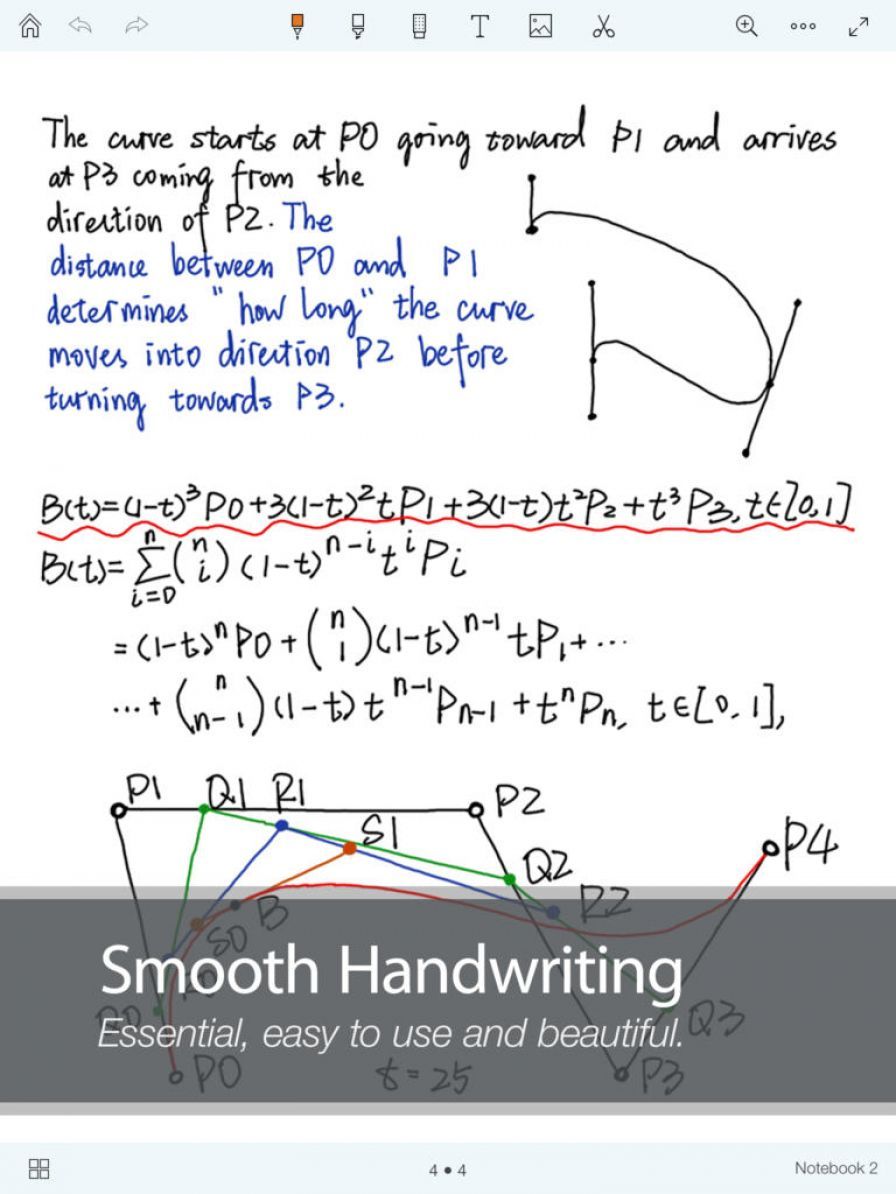 The curve starts at P0 going toward P1 and arrives
at P3 coming from the
direction of P2. The
distance between P0 and P1
determines "how long" the curve
moves into direction P2 before
turning towards P3.
B(t)=(1-t)³P0+3(1-t)²tP1+3(1-t)t²P₂+t³P3, t∈[0,1]
B(t)=∑ⁿᵢ₌₀(ⁿᵢ)(1-t)ⁿ⁻ⁱtⁱPi
=(1-t)ⁿP0+(ⁿ₁)(1-t)ⁿ⁻¹tP₁+...
...+(ⁿₙ₋₁)(1-t)tⁿ⁻¹Pₙ₋₁+tⁿPₙ, t∈[0,1],
P1 Q1 R1 P2
S1
P4
Q2
R2
B
S0
R0
Smooth Handwriting
Q0 Q3
Essential, easy to use and beautiful.
P0 t=25 P3
4 • 4 Notebook 2